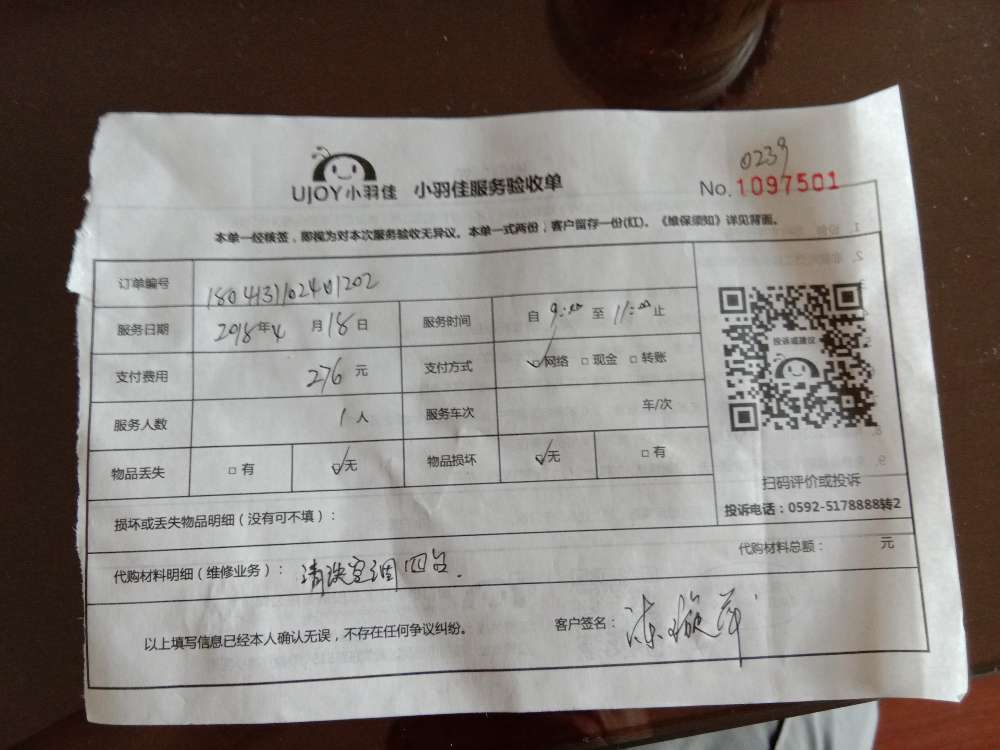 0239
UJOY小羽佳 小羽佳服务验收单 No.1097501
本单一经核签，即视为对本次服务验收无异议。本单一式两份，客户留存一份(红)。《维保须知》详见背面。
订单编号 1804131102401202
服务日期 2018年4月18日 服务时间 自9:00至11:00止
支付费用 276元 支付方式 ☑网络 □现金 □转账
服务人数 1人 服务车次 车/次
物品丢失 □有 ☑无 物品损坏 ☑无 □有
投诉或建议
扫码评价或投诉
投诉电话：0592-5178888转2
损坏或丢失物品明细（没有可不填）：
代购材料明细（维修业务）：清洗空调四台. 代购材料总额： 元
以上填写信息已经本人确认无误，不存在任何争议纠纷。 客户签名：陈